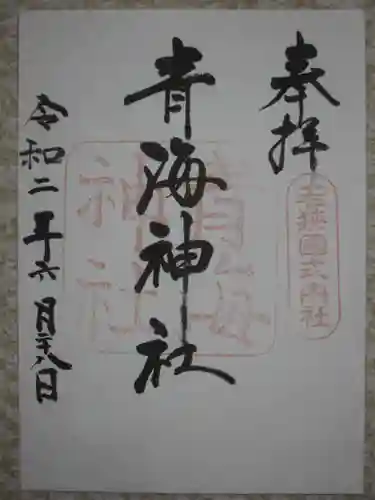 奉拝
若狭國式内社
青海神社
青海
神社
令和二年六月二十八日